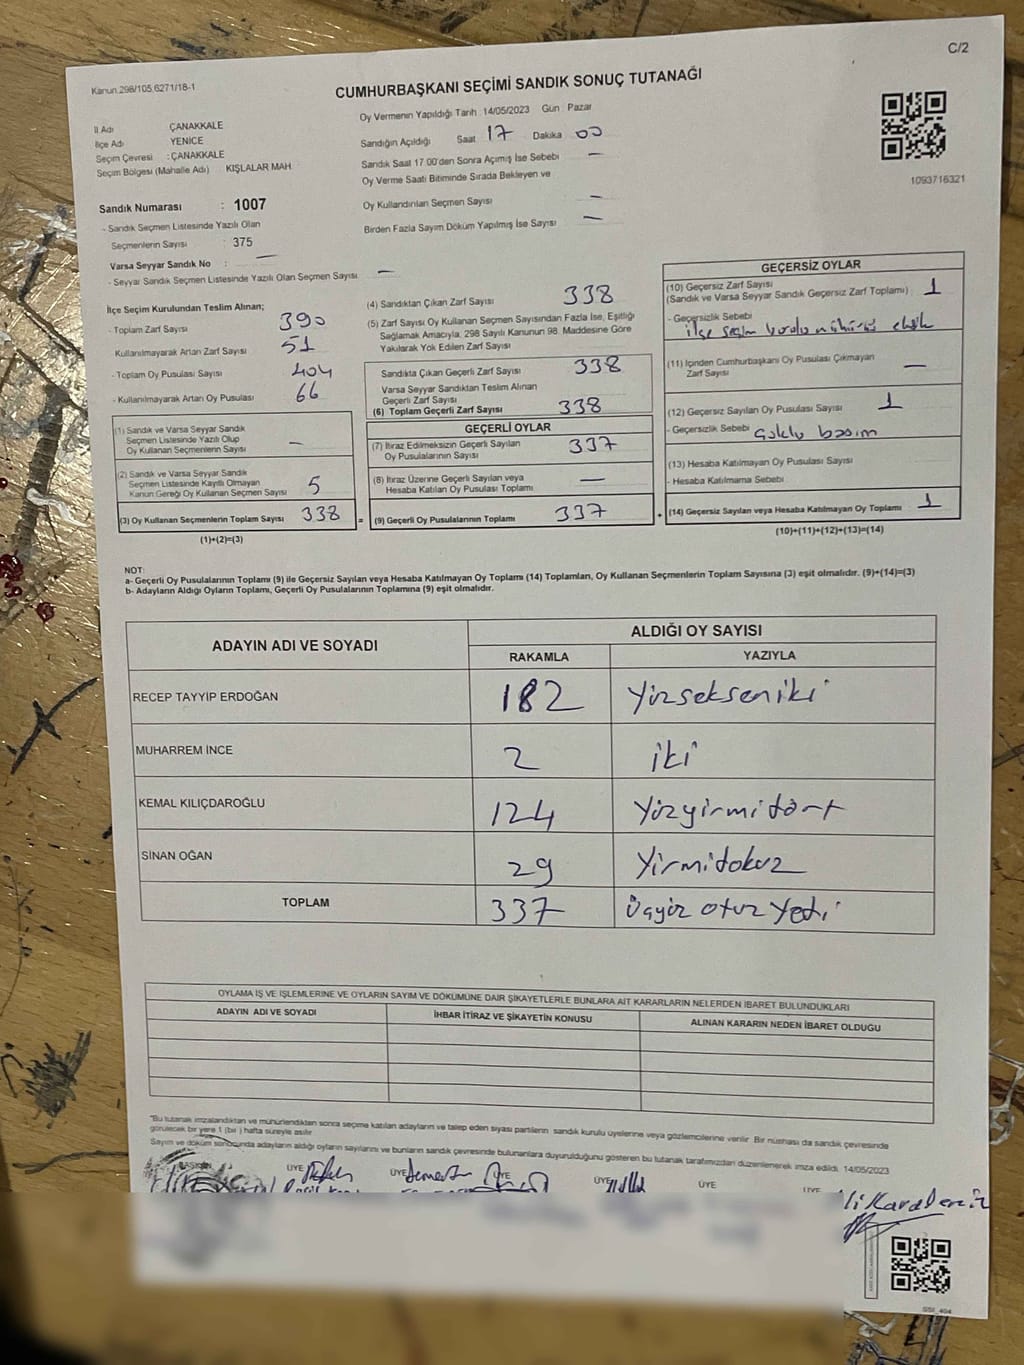 C/2
Kanun 298/105,6271/18-1
CUMHURBAŞKANI SEÇİMİ SANDIK SONUÇ TUTANAĞI
İl Adı ÇANAKKALE
İlçe Adı YENİCE
Seçim Çevresi : ÇANAKKALE
Seçim Bölgesi (Mahalle Adı) KIŞLALAR MAH
Sandık Numarası : 1007
- Sandık Seçmen Listesinde Yazılı Olan
Seçmenlerin Sayısı : 375
Varsa Seyyar Sandık No : —
- Seyyar Sandık Seçmen Listesinde Yazılı Olan Seçmen Sayısı —
Oy Vermenin Yapıldığı Tarih 14/05/2023 Gün : Pazar
Sandığın Açıldığı Saat 17 Dakika 00
Sandık Saat 17.00'den Sonra Açılmış İse Sebebi —
Oy Verme Saati Bitiminde Sırada Bekleyen ve
Oy Kullandırılan Seçmen Sayısı —
Birden Fazla Sayım Döküm Yapılmış İse Sayısı —
1093716321
İlçe Seçim Kurulundan Teslim Alınan;
- Toplam Zarf Sayısı 390
Kullanılmayarak Artan Zarf Sayısı 51
- Toplam Oy Pusulası Sayısı 404
- Kullanılmayarak Artan Oy Pusulası 66
(1) Sandık ve Varsa Seyyar Sandık
Seçmen Listesinde Yazılı Olup
Oy Kullanan Seçmenlerin Sayısı —
(2) Sandık ve Varsa Seyyar Sandık
Seçmen Listesinde Kayıtlı Olmayan
Kanun Gereği Oy Kullanan Seçmen Sayısı 5
(3) Oy Kullanan Seçmenlerin Toplam Sayısı 338
(1)+(2)=(3)
(4) Sandıktan Çıkan Zarf Sayısı 338
(5) Zarf Sayısı Oy Kullanan Seçmen Sayısından Fazla İse, Eşitliği
Sağlamak Amacıyla, 298 Sayılı Kanunun 98. Maddesine Göre
Yakılarak Yok Edilen Zarf Sayısı
Sandıkta Çıkan Geçerli Zarf Sayısı 338
Varsa Seyyar Sandıktan Teslim Alınan
Geçerli Zarf Sayısı
(6) Toplam Geçerli Zarf Sayısı 338
GEÇERLİ OYLAR
(7) İtiraz Edilmeksizin Geçerli Sayılan
Oy Pusulalarının Sayısı 337
(8) İtiraz Üzerine Geçerli Sayılan veya
Hesaba Katılan Oy Pusulası Toplamı —
= (9) Geçerli Oy Pusulalarının Toplamı 337
GEÇERSİZ OYLAR
(10) Geçersiz Zarf Sayısı
(Sandık ve Varsa Seyyar Sandık Geçersiz Zarf Toplamı) 1
- Geçersizlik Sebebi
ilçe seçim kurulu mührü eksik
(11) İçinden Cumhurbaşkanı Oy Pusulası Çıkmayan
Zarf Sayısı —
(12) Geçersiz Sayılan Oy Pusulası Sayısı 1
- Geçersizlik Sebebi Çoklu basım
(13) Hesaba Katılmayan Oy Pusulası Sayısı
- Hesaba Katılmama Sebebi
+ (14) Geçersiz Sayılan veya Hesaba Katılmayan Oy Toplamı 1
(10)+(11)+(12)+(13)=(14)
NOT:
a- Geçerli Oy Pusulalarının Toplamı (9) ile Geçersiz Sayılan veya Hesaba Katılmayan Oy Toplamı (14) Toplamları, Oy Kullanan Seçmenlerin Toplam Sayısına (3) eşit olmalıdır. (9)+(14)=(3)
b- Adayların Aldığı Oyların Toplamı, Geçerli Oy Pusulalarının Toplamına (9) eşit olmalıdır.
ADAYIN ADI VE SOYADI ALDIĞI OY SAYISI
RAKAMLA YAZIYLA
RECEP TAYYİP ERDOĞAN 182 Yüzsekseniki
MUHARREM İNCE 2 iki
KEMAL KILIÇDAROĞLU 124 Yüzyirmidört
SİNAN OĞAN 29 Yirmidokuz
TOPLAM 337 Üçyüz otuz Yedi
OYLAMA İŞ VE İŞLEMLERİNE VE OYLARIN SAYIM VE DÖKÜMÜNE DAİR ŞİKAYETLERLE BUNLARA AİT KARARLARIN NELERDEN İBARET BULUNDUKLARI
ADAYIN ADI VE SOYADI İHBAR İTİRAZ VE ŞİKAYETİN KONUSU ALINAN KARARIN NEDEN İBARET OLDUĞU
*Bu tutanak imzalandıktan ve mühürlendikten sonra seçime katılan adayların ve talep eden siyasi partilerin sandık kurulu üyelerine veya gözlemcilerine verilir. Bir nüshası da sandık çevresinde
görülecek bir yere 1 (bir) hafta süreyle asılır
Sayım ve döküm sonucunda adayların aldığı oyların sayılarını ve bunların sandık çevresinde bulunanlara duyurulduğunu gösteren bu tutanak tarafımızdan düzenlenerek imza edildi. 14/05/2023
BAŞKAN ÜYE ÜYE ÜYE ÜYE ÜYE ÜYE
Ali Karadeniz
SSI_404